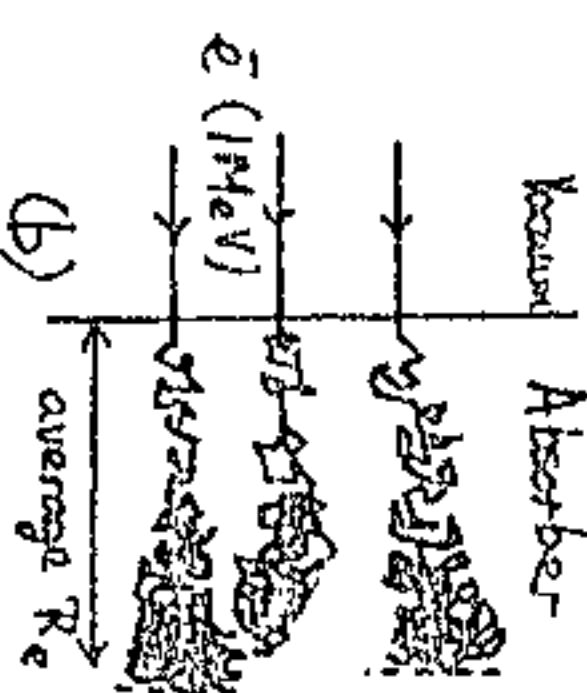 Vacuum
Absorber
e⁻ (1MeV)
average Re
(b)